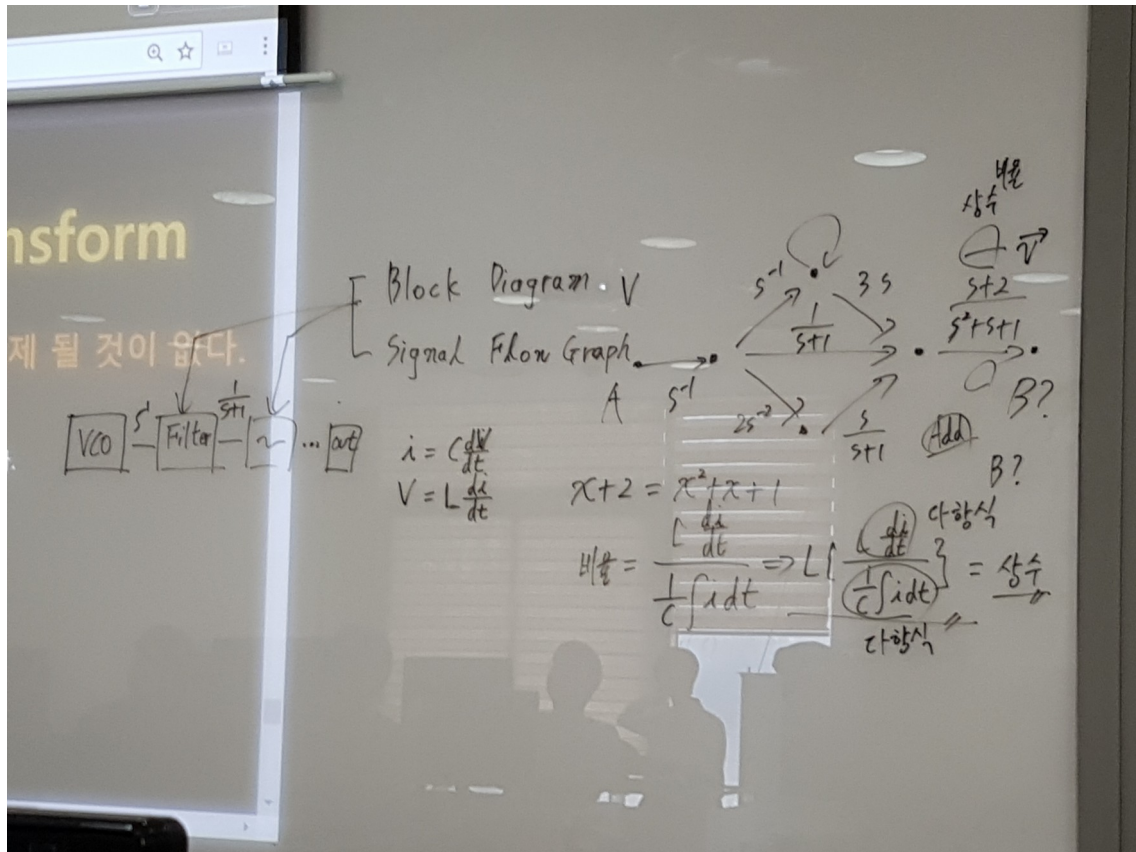 nsform
제 될 것이 없다.
Block Diagram. V
Signal Flow Graph
VCO
Filter
1/(s+1)
~
... out
A
s⁻¹
s⁻¹
3s
1/(s+1)
2s⁻²
s/(s+1)
비율
상수
(s+2)/(s²+s+1)
B?
Add
B?
i = C
V = L di/dt
x+2 = x²+x+1
비율 = L di/dt / 1/C ∫idt ⇒ L{ L di/dt / 1/C ∫idt } = 상수
다항식
다항식